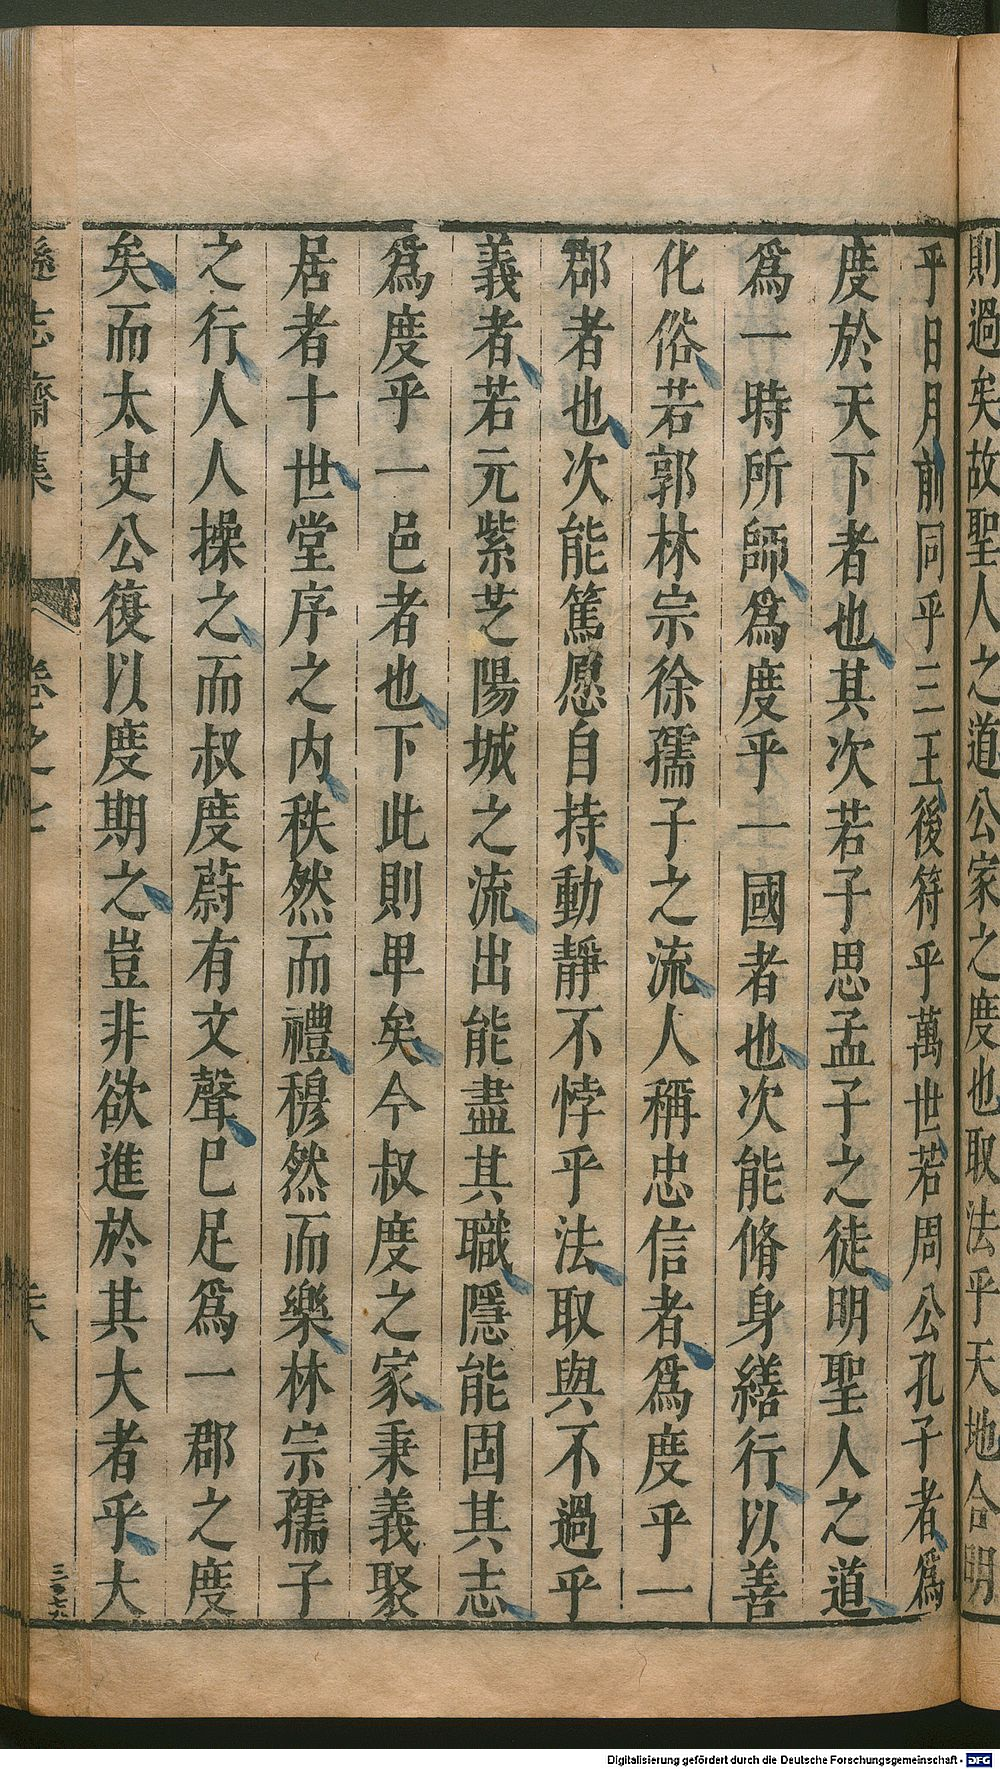 則過矣故聖人之道公家之度也取法乎天地合明
乎日月前同乎三王後符乎萬世若周公孔子者爲
度於天下者也其次若子思孟子之徒明聖人之道
爲一時所師爲度乎一國者也次能脩身繕行以善
化俗若郭林宗徐孺子之流人稱忠信者爲度乎一
郡者也次能篤愿自持動靜不悖乎法取與不過乎
義者若元紫芝陽城之流出能盡其職隱能固其志
爲度乎一邑者也下此則卑矣今叔度之家秉義聚
居者十世堂序之內秩然而禮穆然而樂林宗孺子
之行人人操之而叔度蔚有文聲已足爲一郡之度
矣而太史公復以度期之豈非欲進於其大者乎大
遜志齋集
卷之七
Digitalisierung gefördert durch die Deutsche Forschungsgemeinschaft - DFG